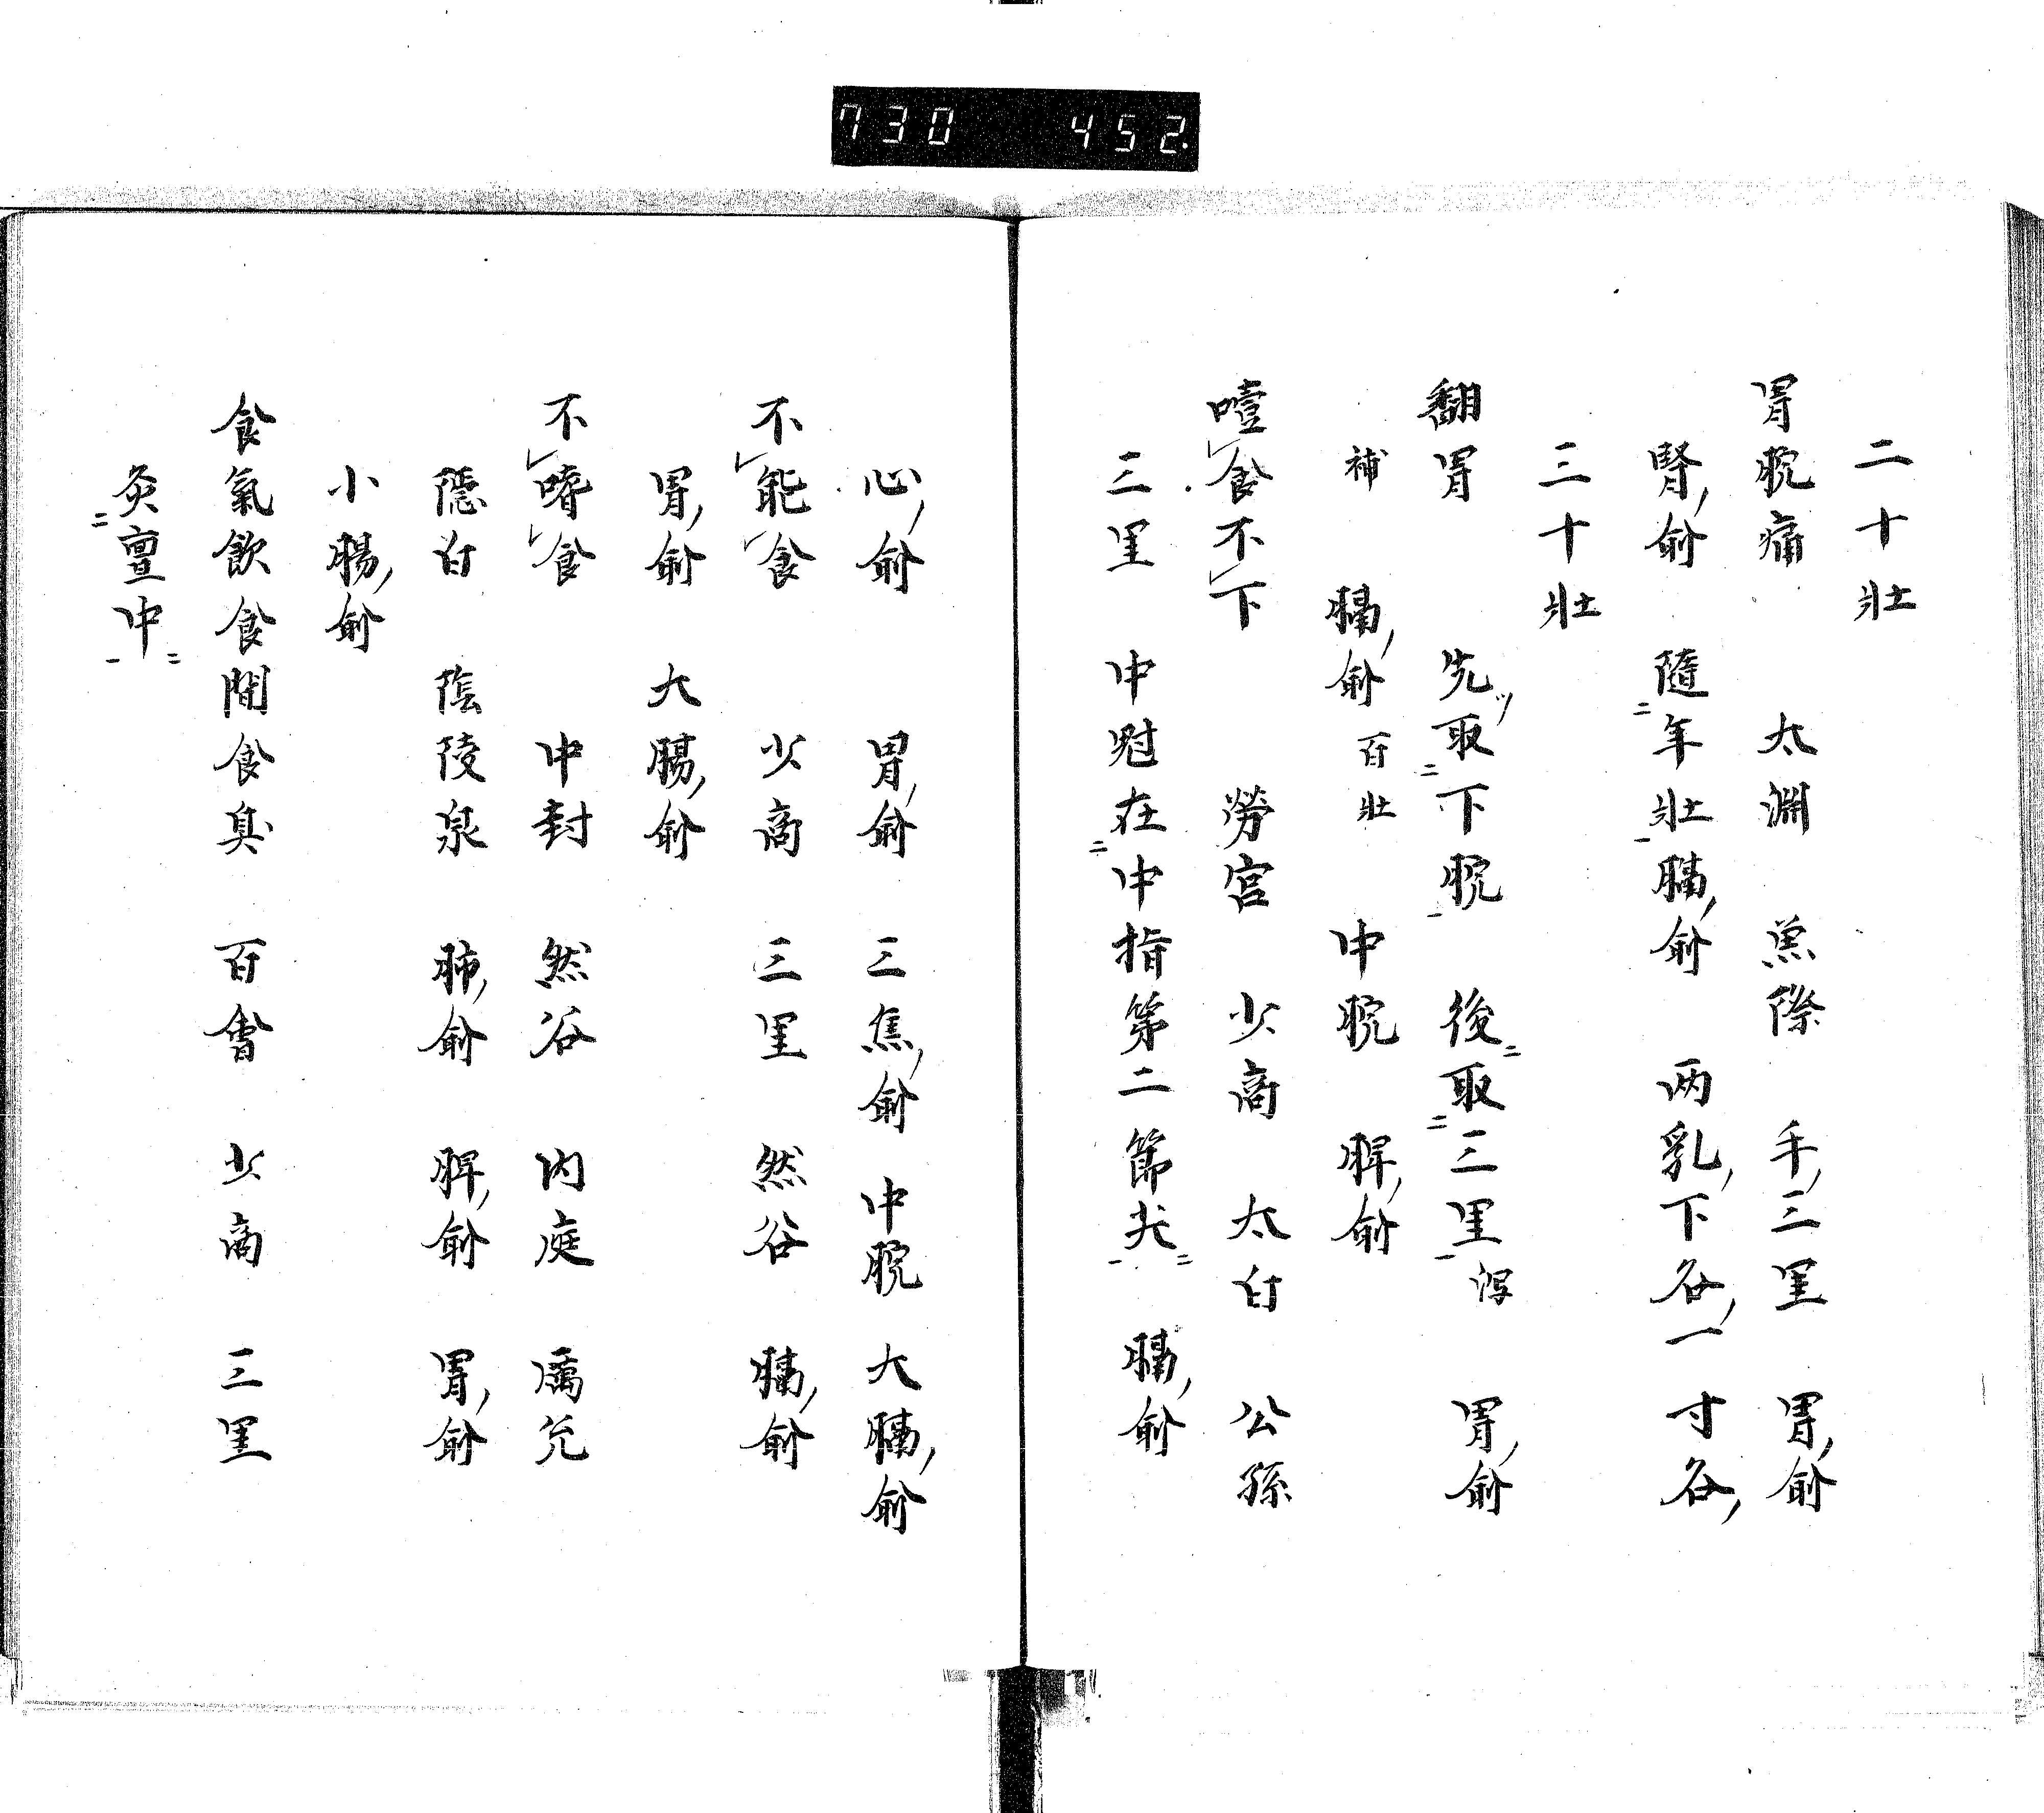 730 452.
二十壯
胃脘痛 太淵 魚際 手三里 胃俞
腎俞 隨年壯 膈俞 两乳下各一寸各
三十壯
翻胃 先取下脘 後取三里泻 胃俞
補 膈俞百壯 中脘 脾俞
噎食不下 勞宮 少商 太白 公孫
三里 中魁在中指第二節尖 膈俞
心俞 胃俞 三焦俞 中脘 大膓俞
不能食 少商 三里 然谷 膈俞
胃俞 大腸俞
不嗜食 中封 然谷 内庭 厲兌
隱白 陰陵泉 肺俞 脾俞 胃俞
小腸俞
食氣飲食聞食臭 百會 少商 三里
灸亶中